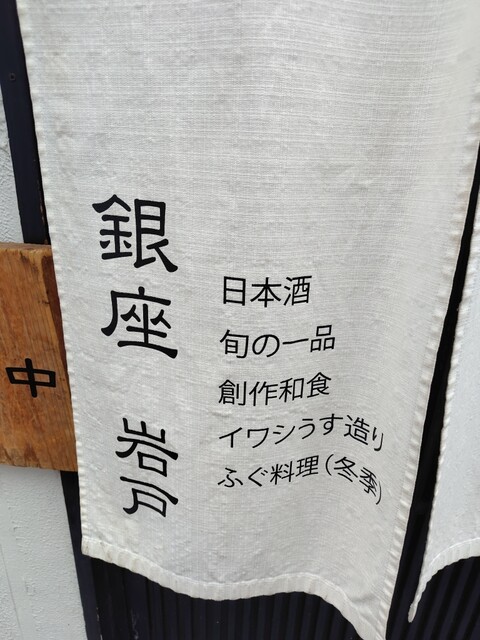 銀座 岩戸
日本酒
旬の一品
創作和食
イワシうす造り
ふぐ料理(冬季)
中